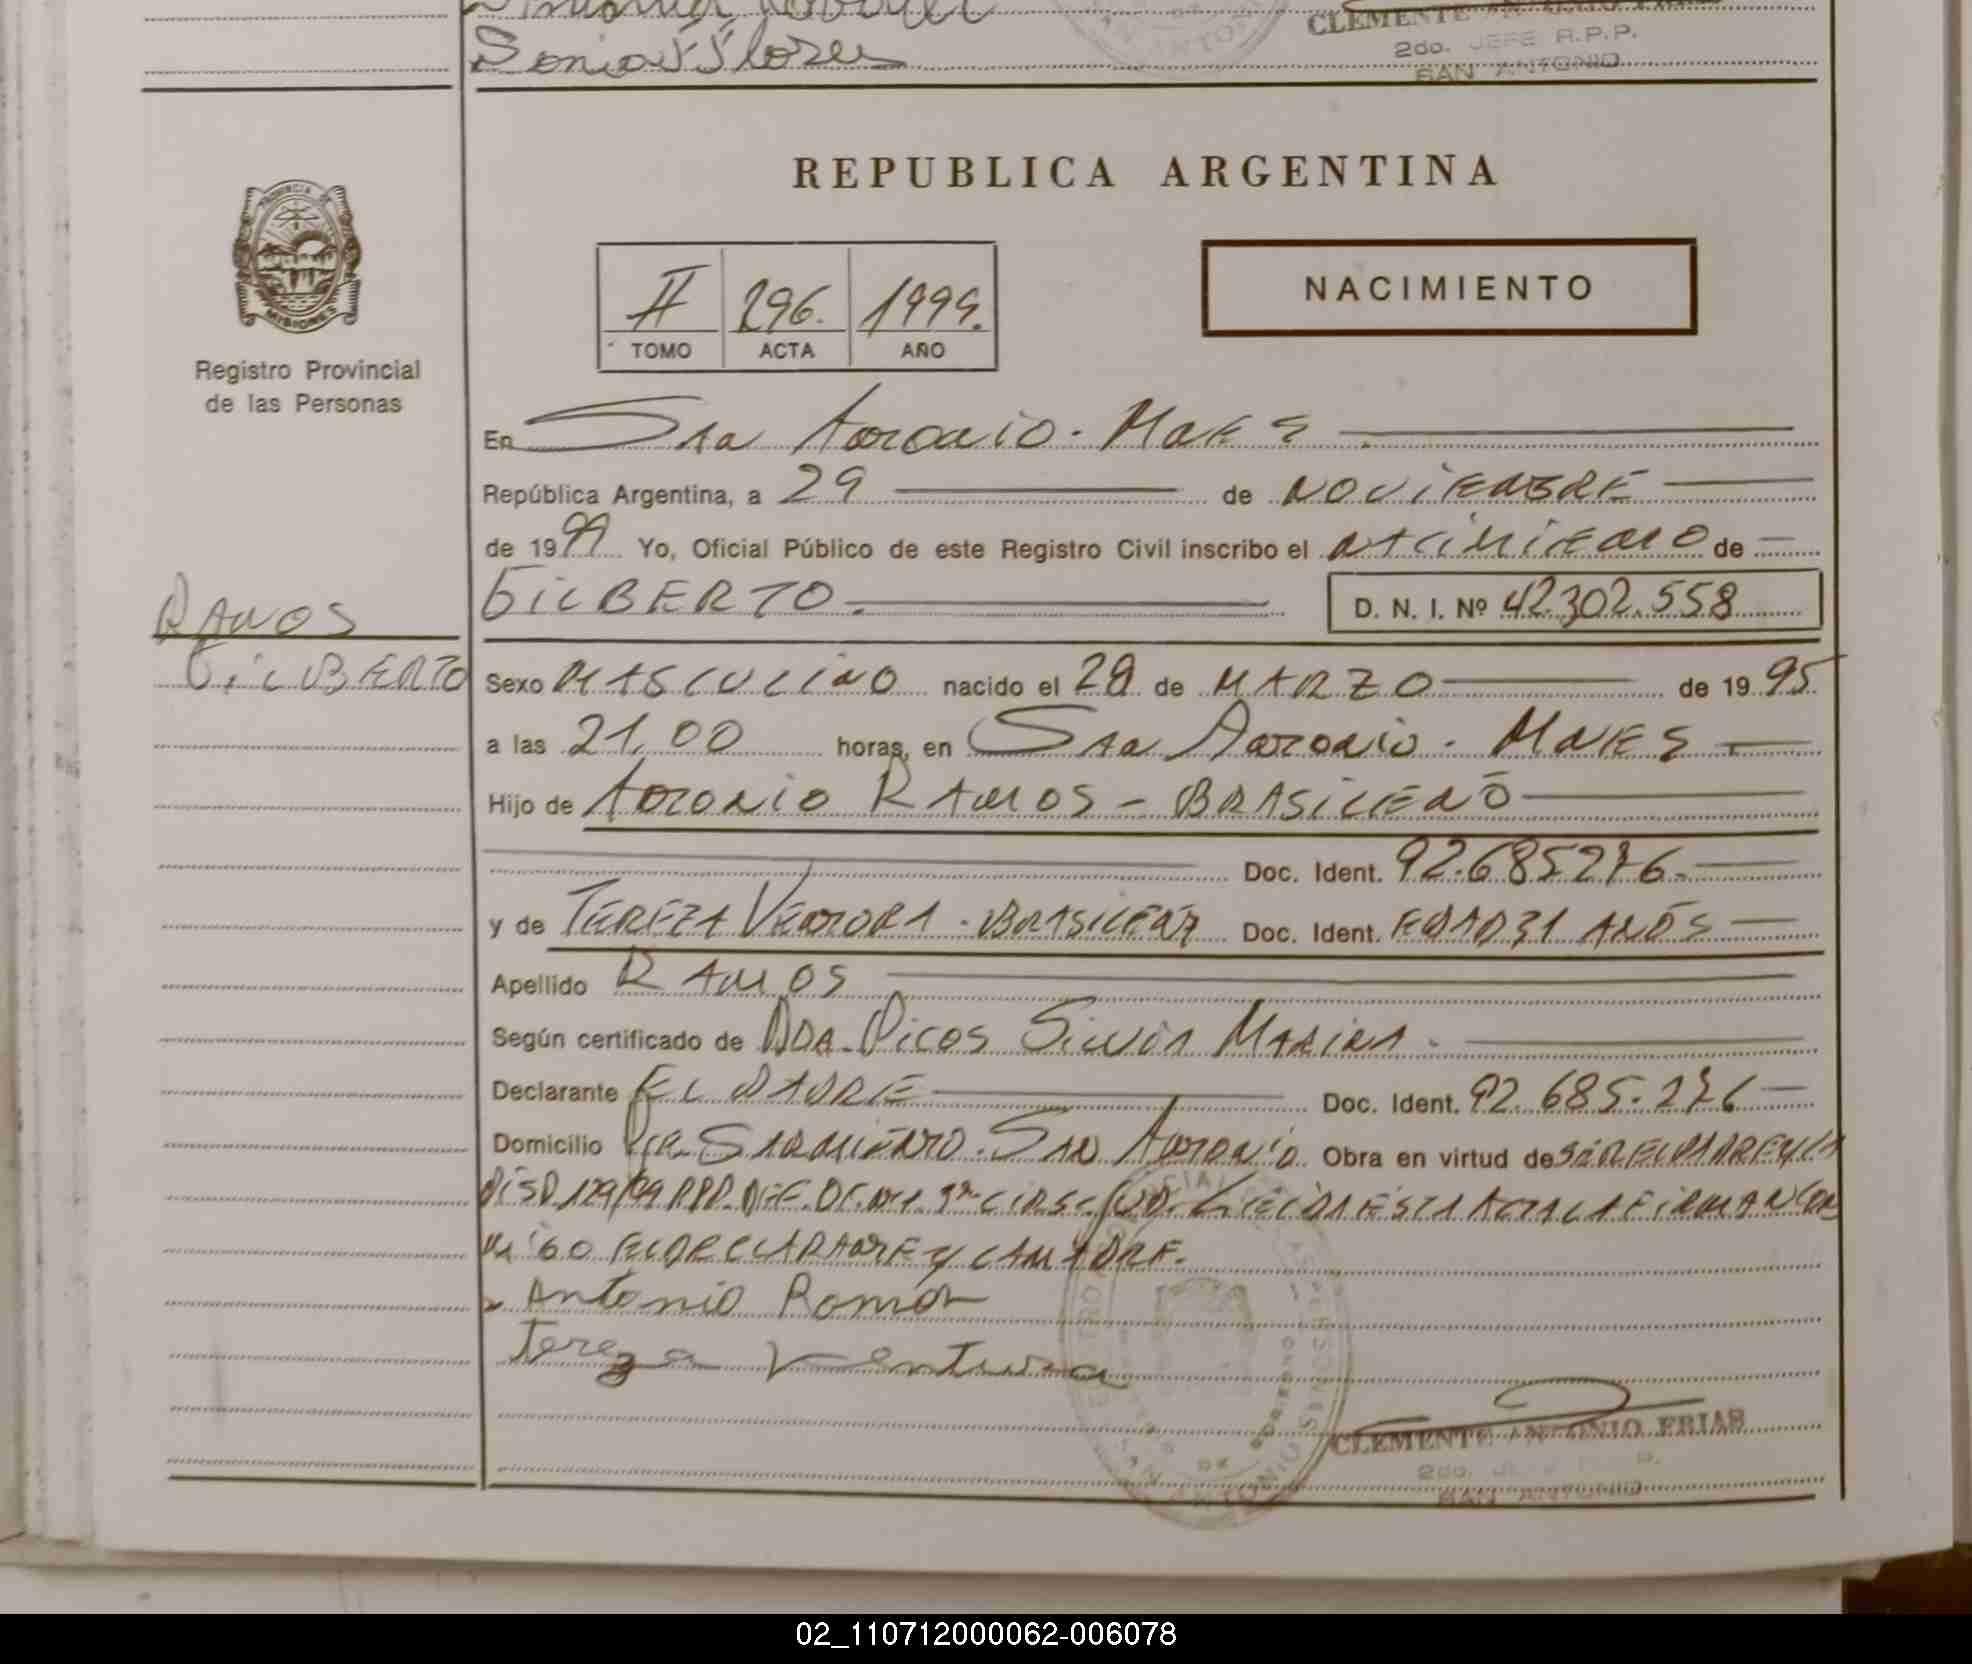 Sonia Flores
CLEMENTE ANTONIO FRIAS
2do. JEFE R.P.P.
SAN ANTONIO
REPUBLICA ARGENTINA
PROVINCIA DE
MISIONES
Registro Provincial
de las Personas
II 296. 1999.
TOMO ACTA AÑO
NACIMIENTO
En San Antonio. Mnes
República Argentina, a 29 de NOVIEMBRE
de 1999 Yo, Oficial Público de este Registro Civil inscribo el NACIMIENTO de
GILBERTO. D. N. I. Nº 42.302.558
RAMOS
GILBERTO
Sexo MASCULINO nacido el 28 de MARZO de 1995
a las 21,00 horas, en San Antonio. Mnes
Hijo de Antonio RAMOS - BRASILEÑO
Doc. Ident. 92.685276.
y de TEREZA VENTURA. BRASILEÑA Doc. Ident. EDAD 31 AÑOS
Apellido RAMOS
Según certificado de DDA. Picos Silvia Marina.
Declarante EL PADRE Doc. Ident. 92.685.276
Domicilio Pje. SARMIENTO. SAN ANTONIO Obra en virtud de
DISP. 129/99 RPP. LEIDA ESTA ACTA LA FIRMAN CON
MIGO EL DECLARANTE Y LA MADRE.
Antonio Ramos
Tereza Ventura
CLEMENTE ANTONIO FRIAS
2do. JEFE R.P.P.
SAN ANTONIO
02_110712000062-006078